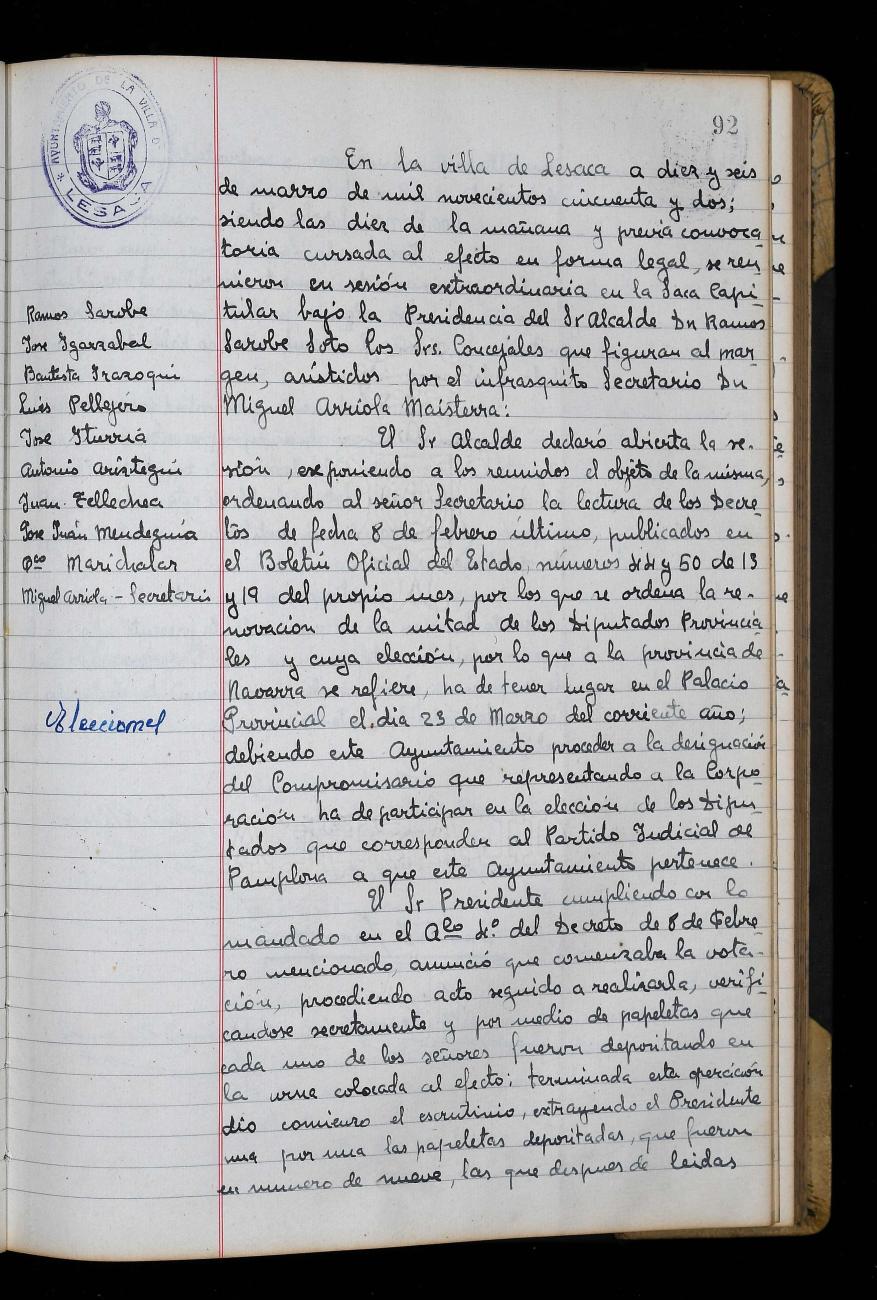 AYUNTAMIENTO DE LA VILLA D
* LESACA
92
En la villa de Lesaca a diez y seis
de marzo de mil novecientos cincuenta y dos;
siendo las diez de la mañana y previa convoca
toria cursada al efecto en forma legal, se reu
nieron en sesión extraordinaria en la Saca Capi-
tular bajo la Presidencia del Sr Alcalde Dn Ramos
Sarobe Soto los Srs. Concejales que figuran al mar
gen, asistidos por el infrasquito Secretario Dn
Miguel Arriola Maisterra:
Ramos Sarobe
Jose Igarzabal
Bautista Irazoqui
Luis Pellejero
Jose Iturria
Antonio Ariztegui
Juan Tellechea
Jose Juan Mendeguia
Fco Marichalar
Miguel Arriola - Secretario
El Sr Alcalde declaró abierta la se-
sión, exponiendo a los reunidos el objeto de la misma,
ordenando al señor Secretario la lectura de los Decre
tos de fecha 8 de febrero último, publicados en
el Boletín Oficial del Estado, números 44 y 50 de 13
y 19 del propio mes, por los que se ordena la re-
novación de la mitad de los Diputados Provincia
les y cuya elección, por lo que a la provincia de
Navarra se refiere, ha de tener lugar en el Palacio
Elecciones
Provincial el dia 23 de Marzo del corriente año;
debiendo este Ayuntamiento proceder a la designación
del Compromisario que representando a la Corpo
ración ha de participar en la elección de los Dipu
tados que corresponden al Partido Judicial de
Pamplona a que este Ayuntamiento pertenece.
El Sr Presidente cumpliendo con lo
mandado en el Aºlo 4.º del Decreto de 8 de Febre
ro mencionado, anunció que comenzaba la vota-
ción, procediendo acto seguido a realizarla, verifi-
candose secretamente y por medio de papeletas que
cada uno de los señores fueron depositando en
la urna colocada al efecto; terminada esta operación
dio comienzo el escrutinio, extrayendo el Presidente
una por una las papeletas depositadas, que fueron
en numero de nueve, las que despues de leidas